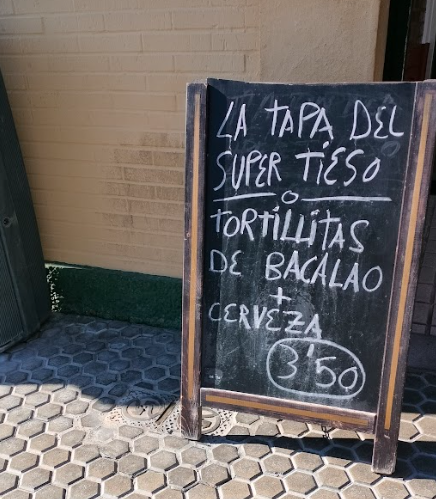 LA TAPA DEL
SUPER TIESO
TORTILLITAS
DE BACALAO
+
CERVEZA
3'50